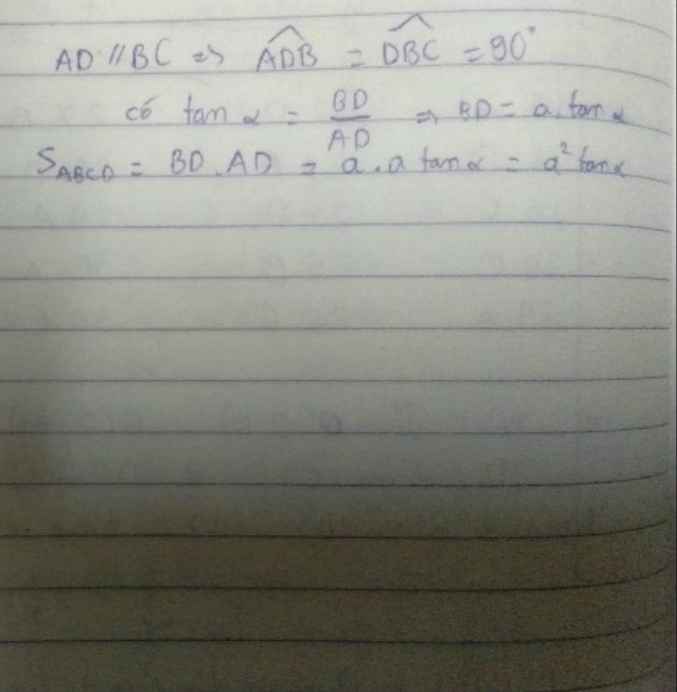 AD // BC => \widehat{ADB} = \widehat{DBC} = 90°
có tan α = BD/AD => BD = a.tan α
S_ABCD = BD.AD = a.a tan α = a² tan α